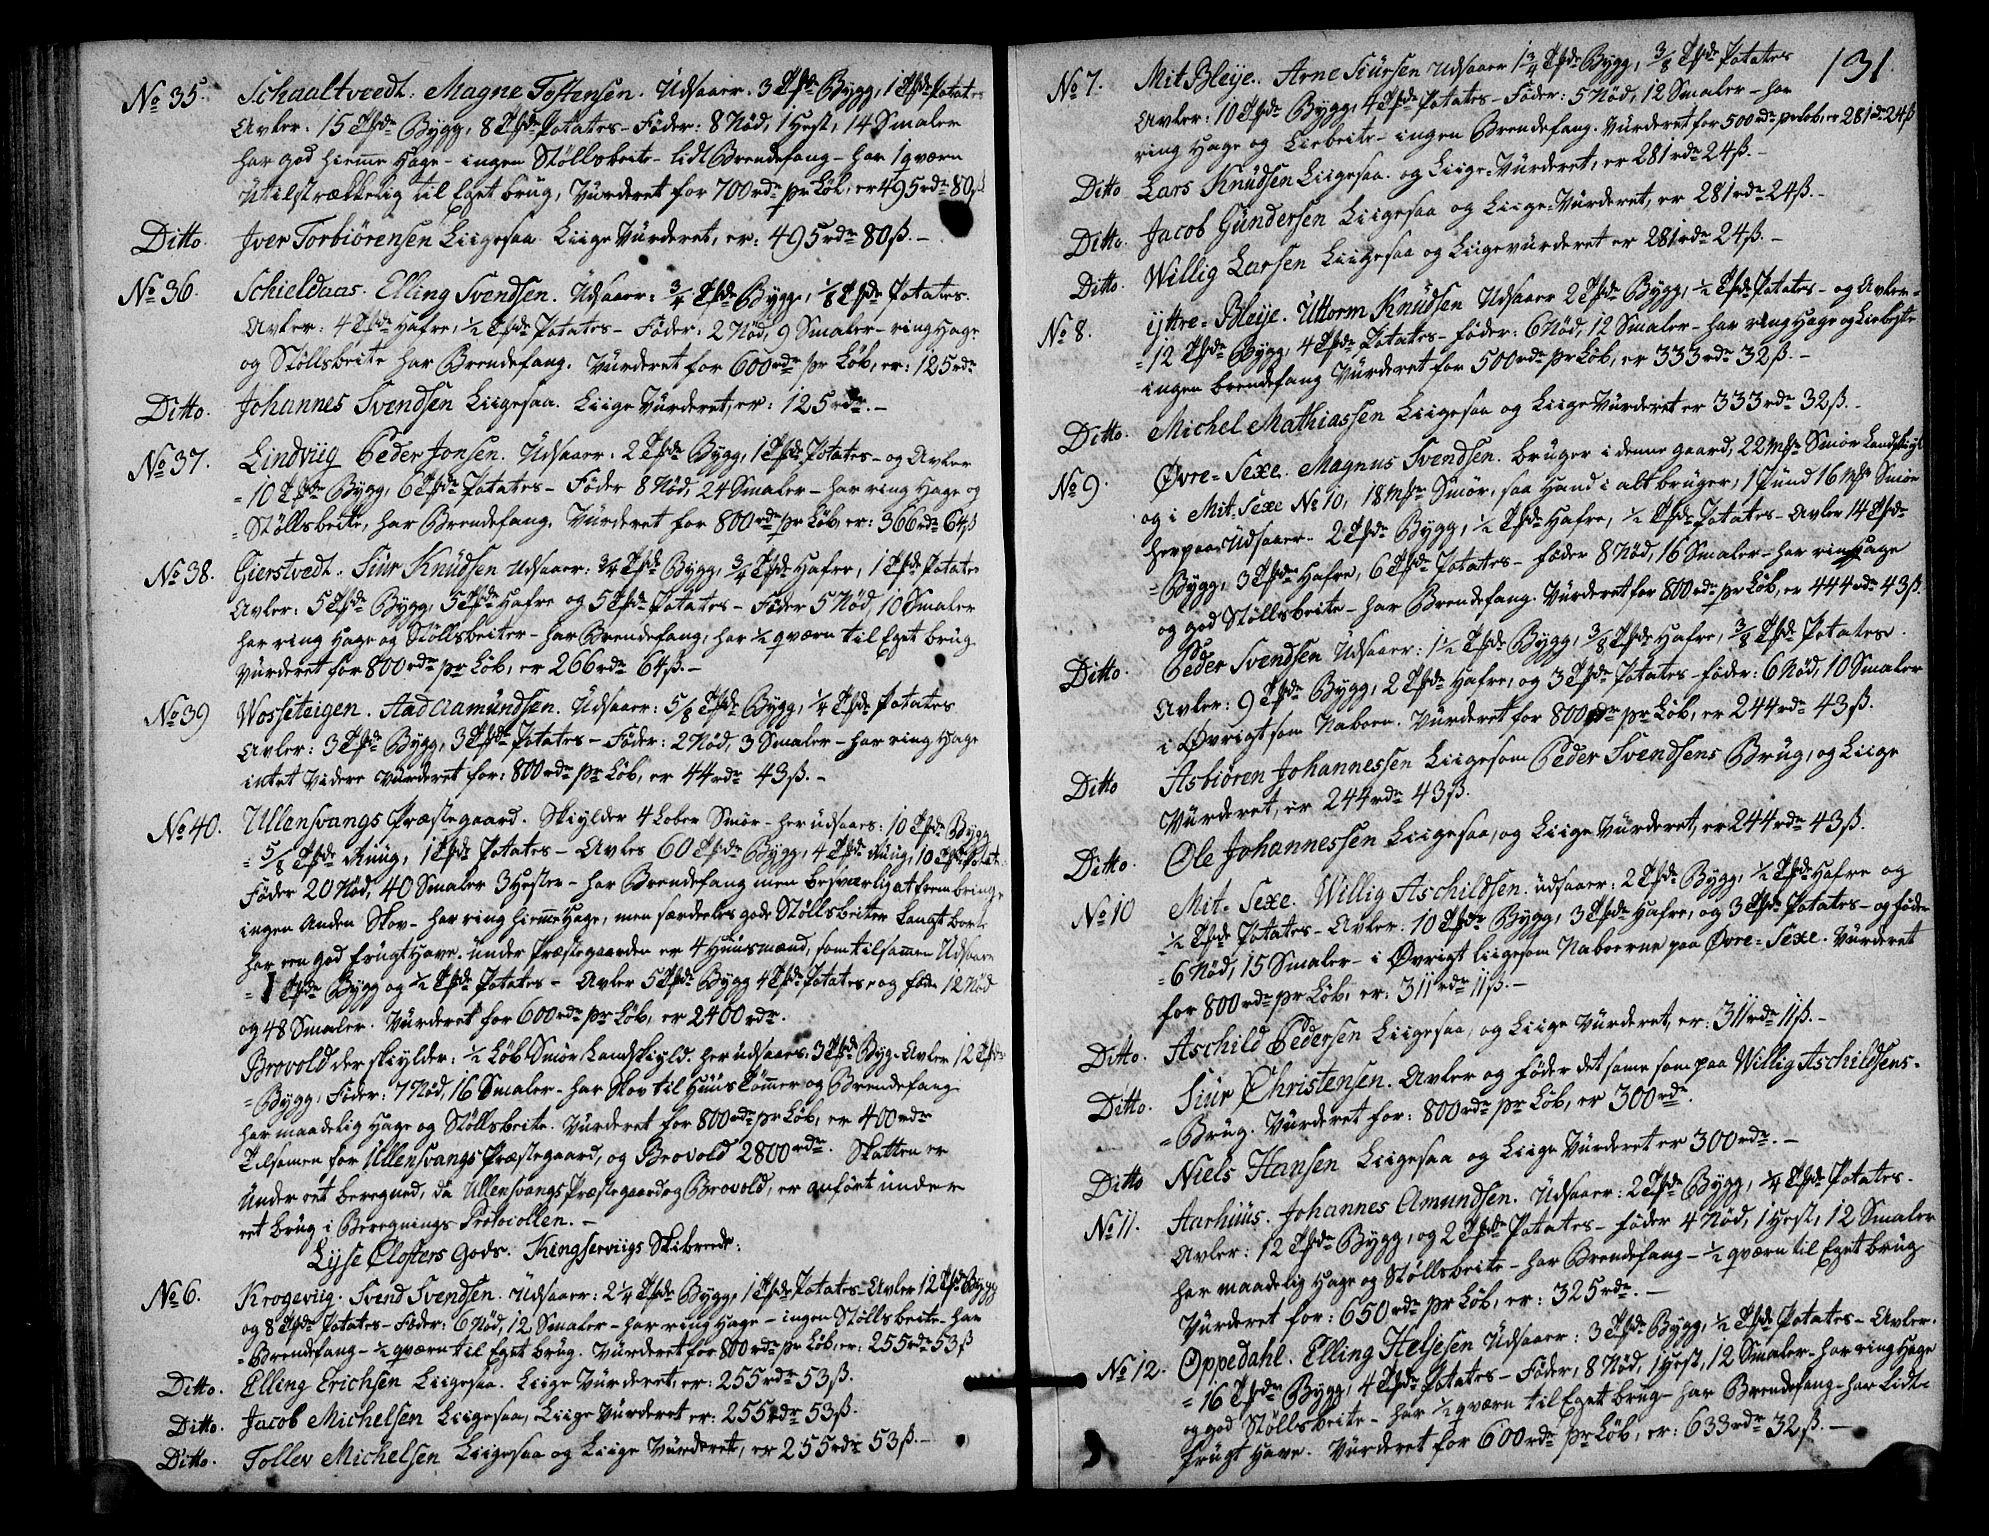 No 35. Schaaltvedt. Magne Toftensen. Udsaaer. 3 Tønder Bygg, 1 Tønde Potates
Avler: 15 Tønder Bygg, 8 Tønder Potates - Føder: 8 Nød, 1 Hest, 14 Smaler
har god hieme Hage - ingen Støllsbeite - lidt Brendefang - har 1 qværn
Utilstrækkelig til Eget brug, Vurderet for 700 rdr pr Løb, er 495 rdr 80 ß
Ditto. Iver Torbiørensen Liigesaa. Liige Vurderet, er: 495 rdr 80 ß. -
No 36. Schieldaas. Elling Svendsen. Udsaaer: 3/4 Tønde Bygg, 1/8 Tønde Potates.
Avler: 4 Tønder Hafre, 1/2 Tønde Potates - Føder: 2 Nød, 9 Smaler - ring Hage
og Støllsbeite har Brendefang. Vurderet for 600 rdr pr Løb, er: 125 rdr
Ditto. Johannes Svendsen Liigesaa. Liige Vurderet, er: 125 rdr. -
No 37. Lindviig Peder Jonsen. Udsaaer: 2 Tønder Bygg, 1 Tønde Potates - og Avler
= 10 Tønder Bygg, 6 Tønder Potates - Føder 8 Nød, 24 Smaler - har ring Hage og
= Støllsbeite, har Brendefang. Vurderet for 800 rdr pr Løb, er: 366 rdr 64 ß
No 38. Gierstvedt. Siur Knudsen Udsaaer: 3/4 Tønde Bygg, 3/4 Tønde Hafre, 1 Tønde Potates
Avler: 5 Tønder Bygg, 5 Tønder Hafre og 5 Tønder Potates - Føder 5 Nød, 10 Smaler
har ring Hage og Støllsbeiter - har Brendefang, har 1/2 qværn til Eget brug
Vurderet for 800 rdr pr Løb, er 266 rdr 64 ß. -
No 39 Wosseteigen. Aad Aamundsen. Udsaaer: 5/8 Tønde Bygg, 1/4 Tønde Potates
Avler: 3 Tønder Bygg, 3 Tønder Potates - Føder: 2 Nød, 3 Smaler - har ring Hage
intet Videre Vurderet for: 800 rdr pr Løb, er 44 rdr 43 ß. -
No 40. Ullensvangs Præstegaard. Skylder 4 Løber Smør - her udsaaes: 10 Tønder Bygg
= 5/8 Tønde Ruug, 1 Tønde Potates - Avles 60 Tønder Bygg, 4 Tønder Ruug, 10 Tønder Potates
Føder 20 Nød, 40 Smaler 3 Hester - har Brendefang men besværlig at frembringe
ingen Anden Skov - har ring hieme Hage, men særdeeles gode Støllsbeiter Langt borte
har een god frugt Have. under Præstegaarden er 4 Huusmænd, som tilsammen Udsaaer
= 1 Tønde Bygg og 1/2 Tønde Potates - Avler 5 Tønder Bygg 4 Tønder Potates, og føder 12 Nød
og 48 Smaler. Vurderet for 600 rdr pr Løb, er 2400 rdr.
Brovold der skylder: 1/2 Løb Smør Landskyld. her udsaaes 3 Tønder Byg - Avler 12 Tønder
= Bygg, Føder: 7 Nød, 16 Smaler - har Skov til Huus Tømmer og Brendefang
har maadelig Hage og Støllsbeite. Vurderet for 800 rdr pr Løb, er 400 rdr
Tilsamen for Ullensvangs Præstegaard, og Brovold 2800 rdr. Skatten er
Under eet beregned, da Ullensvangs Præstegaard og Brovold, er anført under
eet brug i Beregnings Protocollen. -
Lyse Closters Gods. Kingserviigs Skibrede:
No 6. Krogeviig. Svend Svendsen. Udsaaer: 2 1/4 Tønde Bygg, 1 Tønde Potates - Avler 12 Tønder Bygg
og 8 Tønder Potates - Føder: 6 Nød, 12 Smaler - har ring Hage - ingen Støllsbeite - har
= Brendefang - 1/2 qværn til Eget brug. Vurderet for 800 rdr pr Løb, er: 255 rdr 53 ß
Ditto. Elling Erichsen Liigesaa. Liige Vurderet, er: 255 rdr 53 ß.
Ditto. Jacob Michelsen Liigesaa, Liige Vurderet er: 255 rdr 53 ß.
Ditto. Tollev Michelsen Liigesaa og Liige Vurderet, er 255 rdr 53 ß. -
131.
No 7. Mit Bleije. Arne Siursen Udsaaer 1 3/4 Tønde Bygg, 3/8 Tønde Potates
Avler: 10 Tønder Bygg, 4 Tønder Potates - Føder: 5 Nød, 12 Smaler - har
ring Hage og Liebeite - ingen Brendefang. Vurderet for 500 rdr pr Løb, er 281 rdr 24 ß
Ditto Lars Knudsen Liigesaa. og Liige Vurderet, er 281 rdr 24 ß. -
Ditto. Jacob Gundersen Liigesaa og Liige Vurderet, er 281 rdr 24 ß. -
Ditto. Willig Larsen Liigesaa og Liigevurderet er 281 rdr 24 ß. -
No 8. ijttre = Bleije. Uttorm Knudsen Udsaaer 2 Tønder Bygg, 1/2 Tønde Potates - og Avler =
= 12 Tønder Bygg, 4 Tønder Potates - føder: 6 Nød, 12 Smaler - har ring Hage og Liebeite
ingen brendefang Vurderet for 500 rdr pr Løb, er 333 rdr 32 ß. -
Ditto. Michel Mathiassen Liigesaa og Liige Vurderet er 333 rdr 32 ß. -
No 9. Øvre = Sexe. Magnus Svendsen. bruger i denne gaard, 22 mker Smør Landskyld
og i Mit = Sexe No 10, 18 mker Smør, saa Hand i alt bruger, 1 Pund 16 mker Smør
herpaa Udsaaer. 2 Tønder Bygg, 1/2 Tønde Hafre, 1/2 Tønde Potates - Avler 14 Tønder
= Bygg, 3 Tønder Hafre, 6 Tønder Potates - føder 8 Nød, 16 Smaler - har ring Hage
og god Støllsbeite - har Brendefang. Vurderet for 800 rdr pr Løb, er 444 rdr 43 ß.
Ditto. Peder Svendsen Udsaaer: 1 1/2 Tønde Bygg, 3/8 Tønde Hafre, 3/8 Tønde Potates.
Avler: 9 Tønder Bygg, 2 Tønder Hafre, og 3 Tønder Potates - føder: 6 Nød, 10 Smaler
i Øvrigt som Naboen. Vurderet for 800 rdr pr Løb, er 244 rdr 43 ß.
Ditto Asbiøren Johannessen Liigesom Peder Svendsens Brug, og Liige
Vurderet, er 244 rdr 43 ß.
Ditto. Ole Johannessen Liigesaa, og Liige Vurderet, er 244 rdr 43 ß.
No 10 Mit = Sexe. Willig Aschildsen. udsaaer: 2 Tønder Bygg, 1/2 Tønde Hafre og
1/2 Tønde Potates - Avler: 10 Tønder Bygg, 3 Tønder Hafre, og 3 Tønder Potates - og føder
= 6 Nød, 15 Smaler - i Øvrigt liigesom Naboerne paa Øvre = Sexe. Vurderet
for 800 rdr pr Løb, er: 311 rdr 11 ß. -
Ditto. Aschild Pedersen Liigesaa, og Liige Vurderet, er: 311 rdr 11 ß. -
Ditto. Siur Christensen. Avler og føder det same som paa Willig Aschildsens =
= Brug. Vurderet for: 800 rdr pr Løb, er 300 rdr.
Ditto Niels Hansen Liigesaa og Liige Vurderet er 300 rdr. -
No 11. Aarhuus. Johannes Amundsen. Udsaaer: 2 Tønder Bygg, 1/4 Tønde Potates.
Avler: 12 Tønder Bygg, og 2 Tønder Potates - føder 4 Nød, 1 Hest, 12 Smaler
har maadelig Hage og Støllsbeite - har Brendefang - 1/2 qværn til Eget brug
Vurderet for: 650 rdr pr Løb, er: 325 rdr. -
No 12. Oppedahl. Elling Heljesen Udsaaer: 3 Tønder Bygg, 1/2 Tønde Potates - Avler.
= 16 Tønder Bygg, 4 Tønder Potates - Føder, 8 Nød, 1 Hest, 12 Smaler - har ring Hage
og god Støllsbeite - har 1/2 qværn til Eget brug - har Brendefang - har Lidt -
frugt Have. Vurderet for 600 rdr pr Løb, er: 633 rdr 32 ß. -